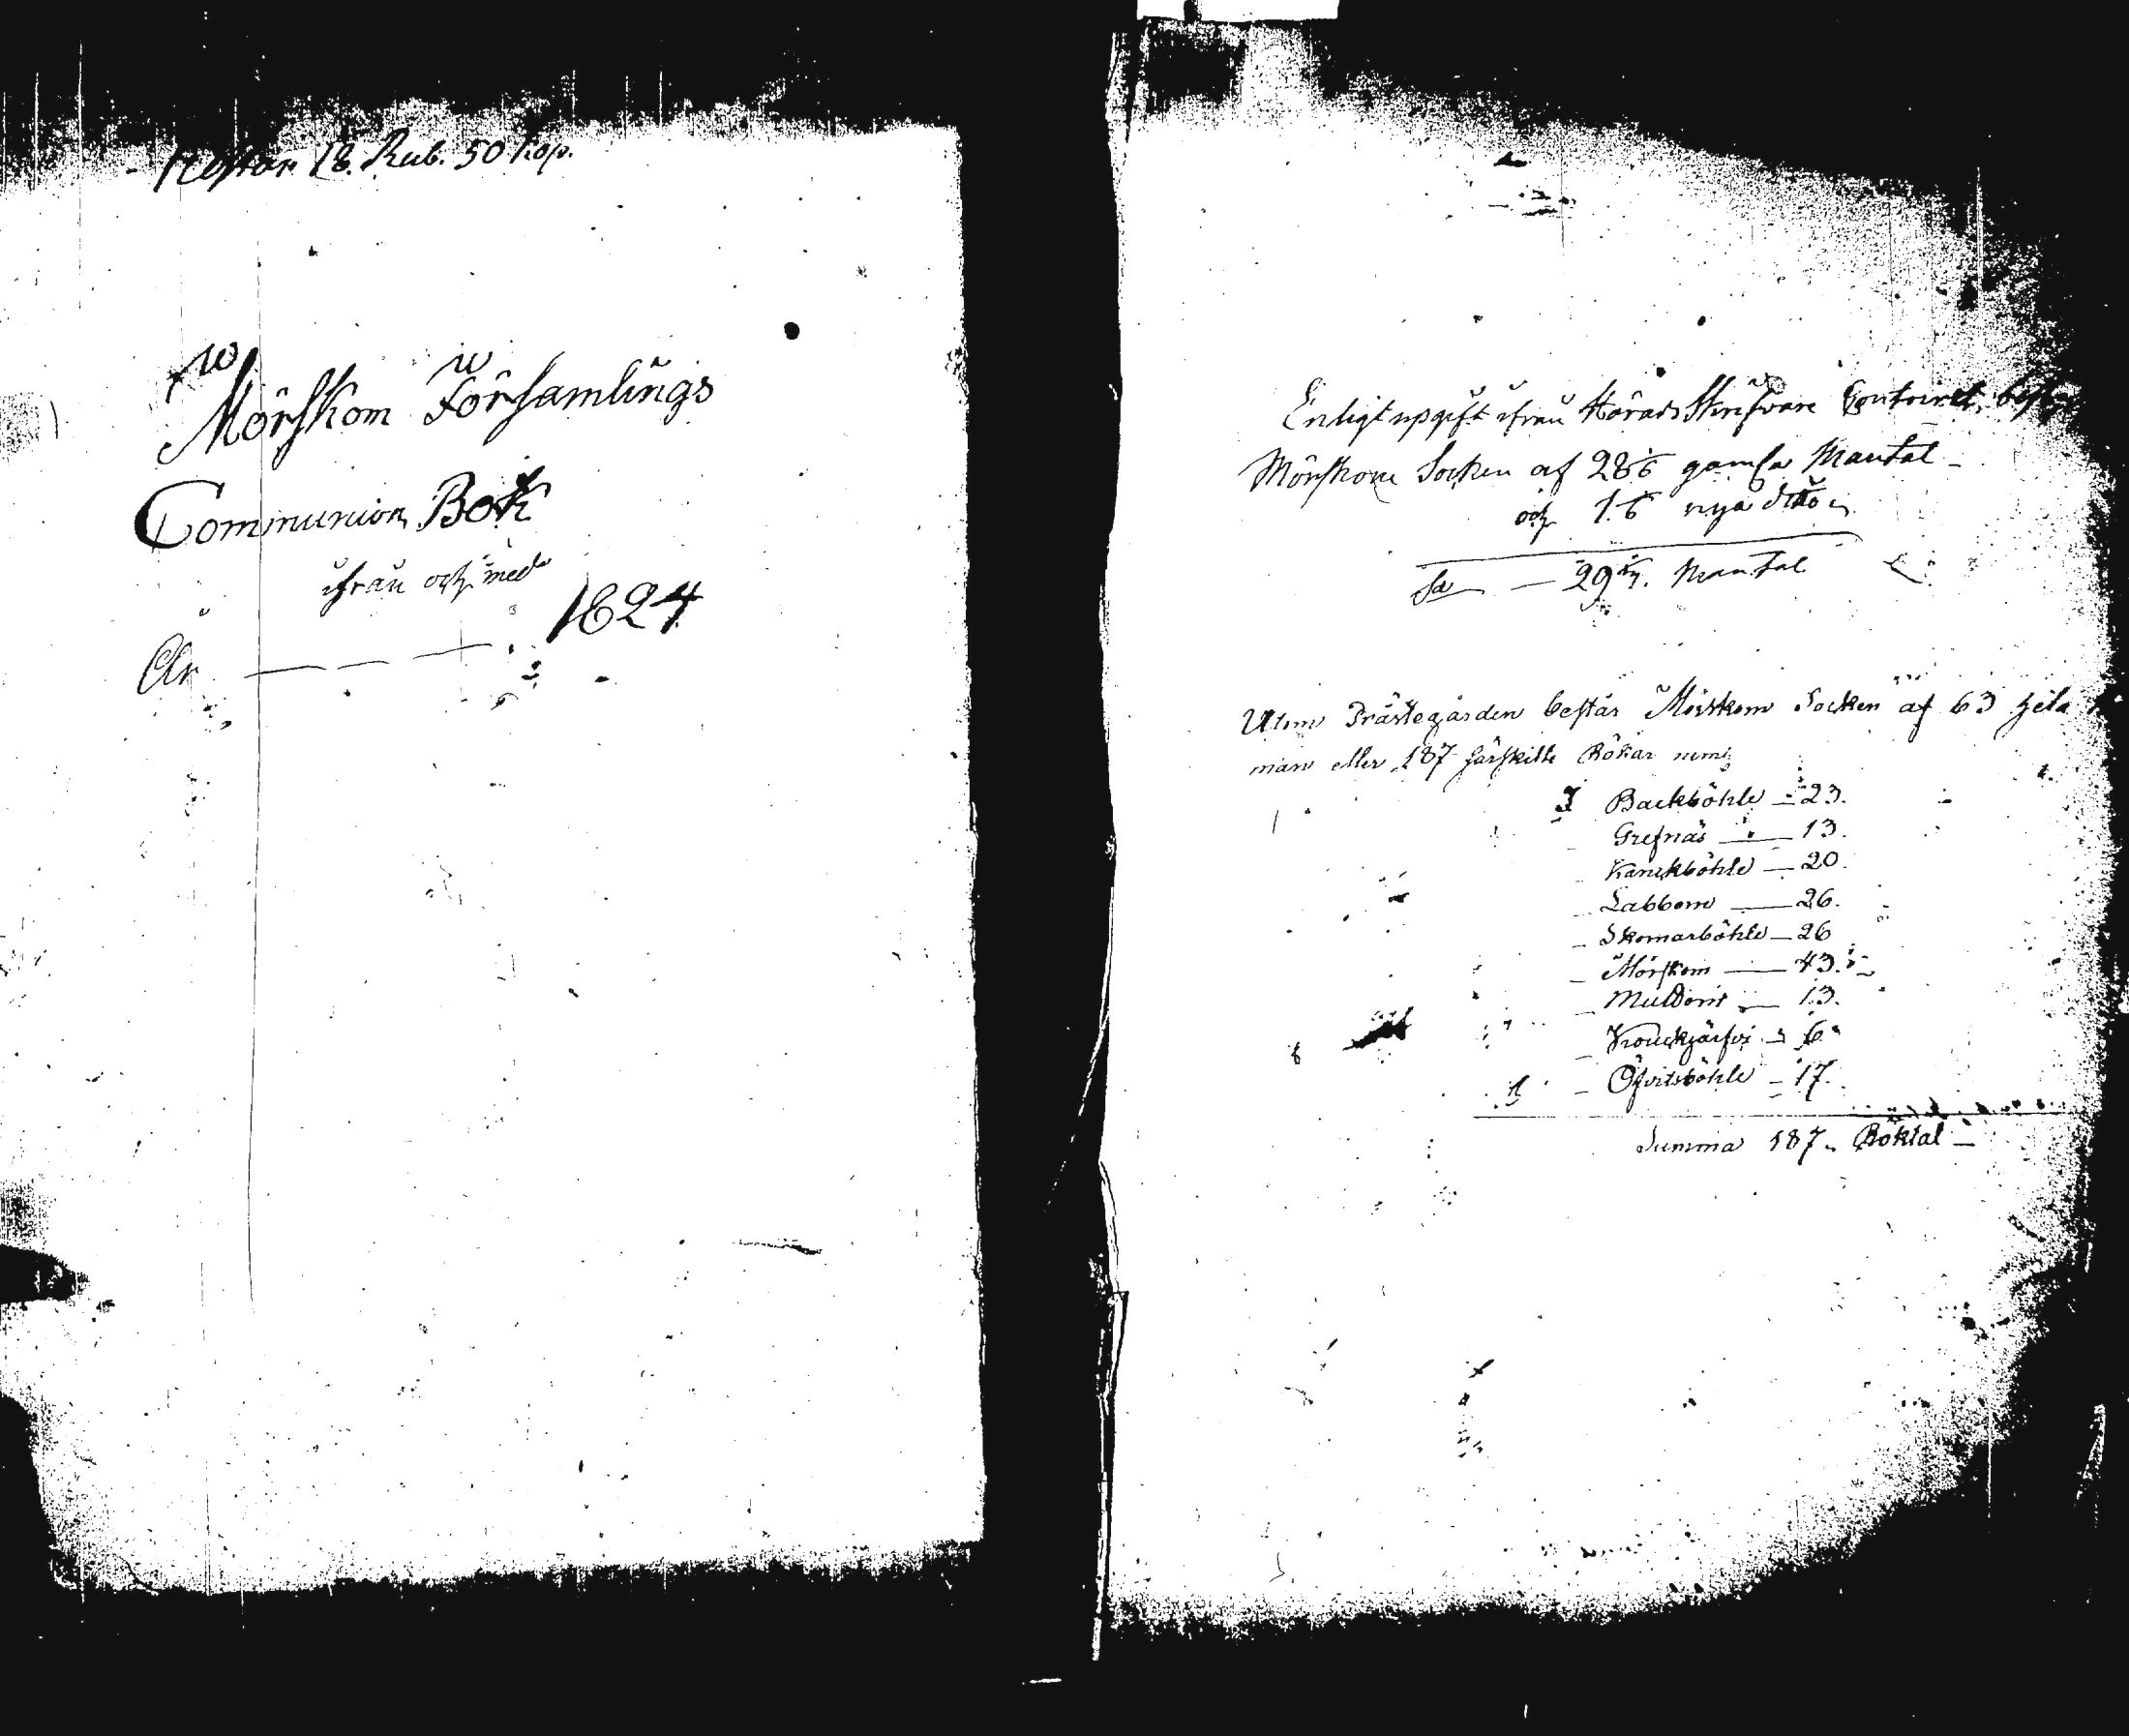 Kostar 18. Rub. 50 Kop.
Mörskom Församlings
Communion Bok
ifrån och med
År — — — 1824
Enligt upgift ifrån Härads Skrifvare Contoiret
Mörskom Socken af gamla Mantal
och nya ditto
Sa — Mantal
Utom Prästegården består Mörskom Socken af 63 hela
män eller 187 särskilte Rökar neml
I Backböhle — 23.
Grefnäs — 13.
Kanckböhle — 20.
Labbom — 26.
Skomarböhle — 26
Mörskom — 43.
— 13.
Kouckjärfvi — 6
— 17.
Summa 187. Röktal